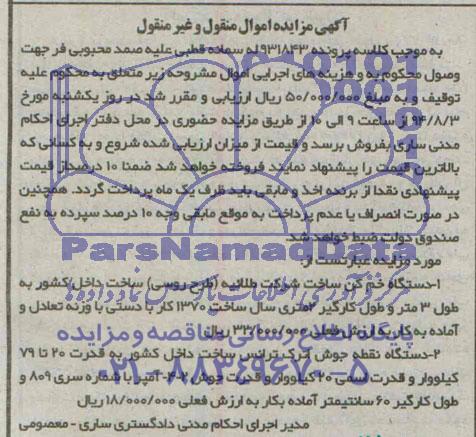 آگهی مزایده اموال منقول و غیر منقول
به موجب کلاسه پرونده ۹۳۱۸۴۳ له سمانه قطبی علیه صمد محبوبی فر جهت
وصول محکوم به و هزینه های اجرایی اموال مشروحه زیر متعلق به محکوم علیه
توقیف و به مبلغ ۵۰/۰۰۰/۰۰۰ ریال ارزیابی و مقرر شد در روز یکشنبه مورخ
۹۴/۸/۳ از ساعت ۹ الی ۱۰ از طریق مزایده حضوری در محل دفتر اجرای احکام
مدنی ساری بفروش برسد و قیمت از میزان ارزیابی شده شروع و به کسانی که
بالاترین قیمت را پیشنهاد نمایند فروخته خواهد شد ضمنا ۱۰ درصد از قیمت
پیشنهادی نقدا از برنده اخذ و مابقی باید ظرف یک ماه پرداخت گردد. همچنین
در صورت انصراف یا عدم پرداخت به موقع مابقی وجه ۱۰ درصد سپرده به نفع
صندوق دولت ضبط خواهد شد.
ParsNamadData
مورد مزایده عبارتست از:
۱-دستگاه خم کن ساخت شرکت طلائیه (طرح روسی) ساخت داخل کشور به
طول ۳ متر و طول کارگیر ۲متری سال ساخت ۱۳۷۰ کار با دستی با وزنه تعادل و
آماده به کار به ارزش فعلی ۳۳/۰۰۰/۰۰۰ ریال
پایگاه اطلاع رسانی مناقصه و مزایده
۲-دستگاه نقطه جوش ترانس ساخت داخل کشور به قدرت ۲۰ تا ۷۹
کیلووار و قدرت اسمی ۲۰ کیلووار و قدرت جوش آمپر با شماره سری ۸۰۹ و
۰۲۱-۸۸۳۴۹۶۷۰-۵
طول کارگیر ۶۰ سانتیمتر آماده بکار به ارزش فعلی ۱۸/۰۰۰/۰۰۰ ریال
مدیر اجرای احکام مدنی دادگستری ساری - معصومی